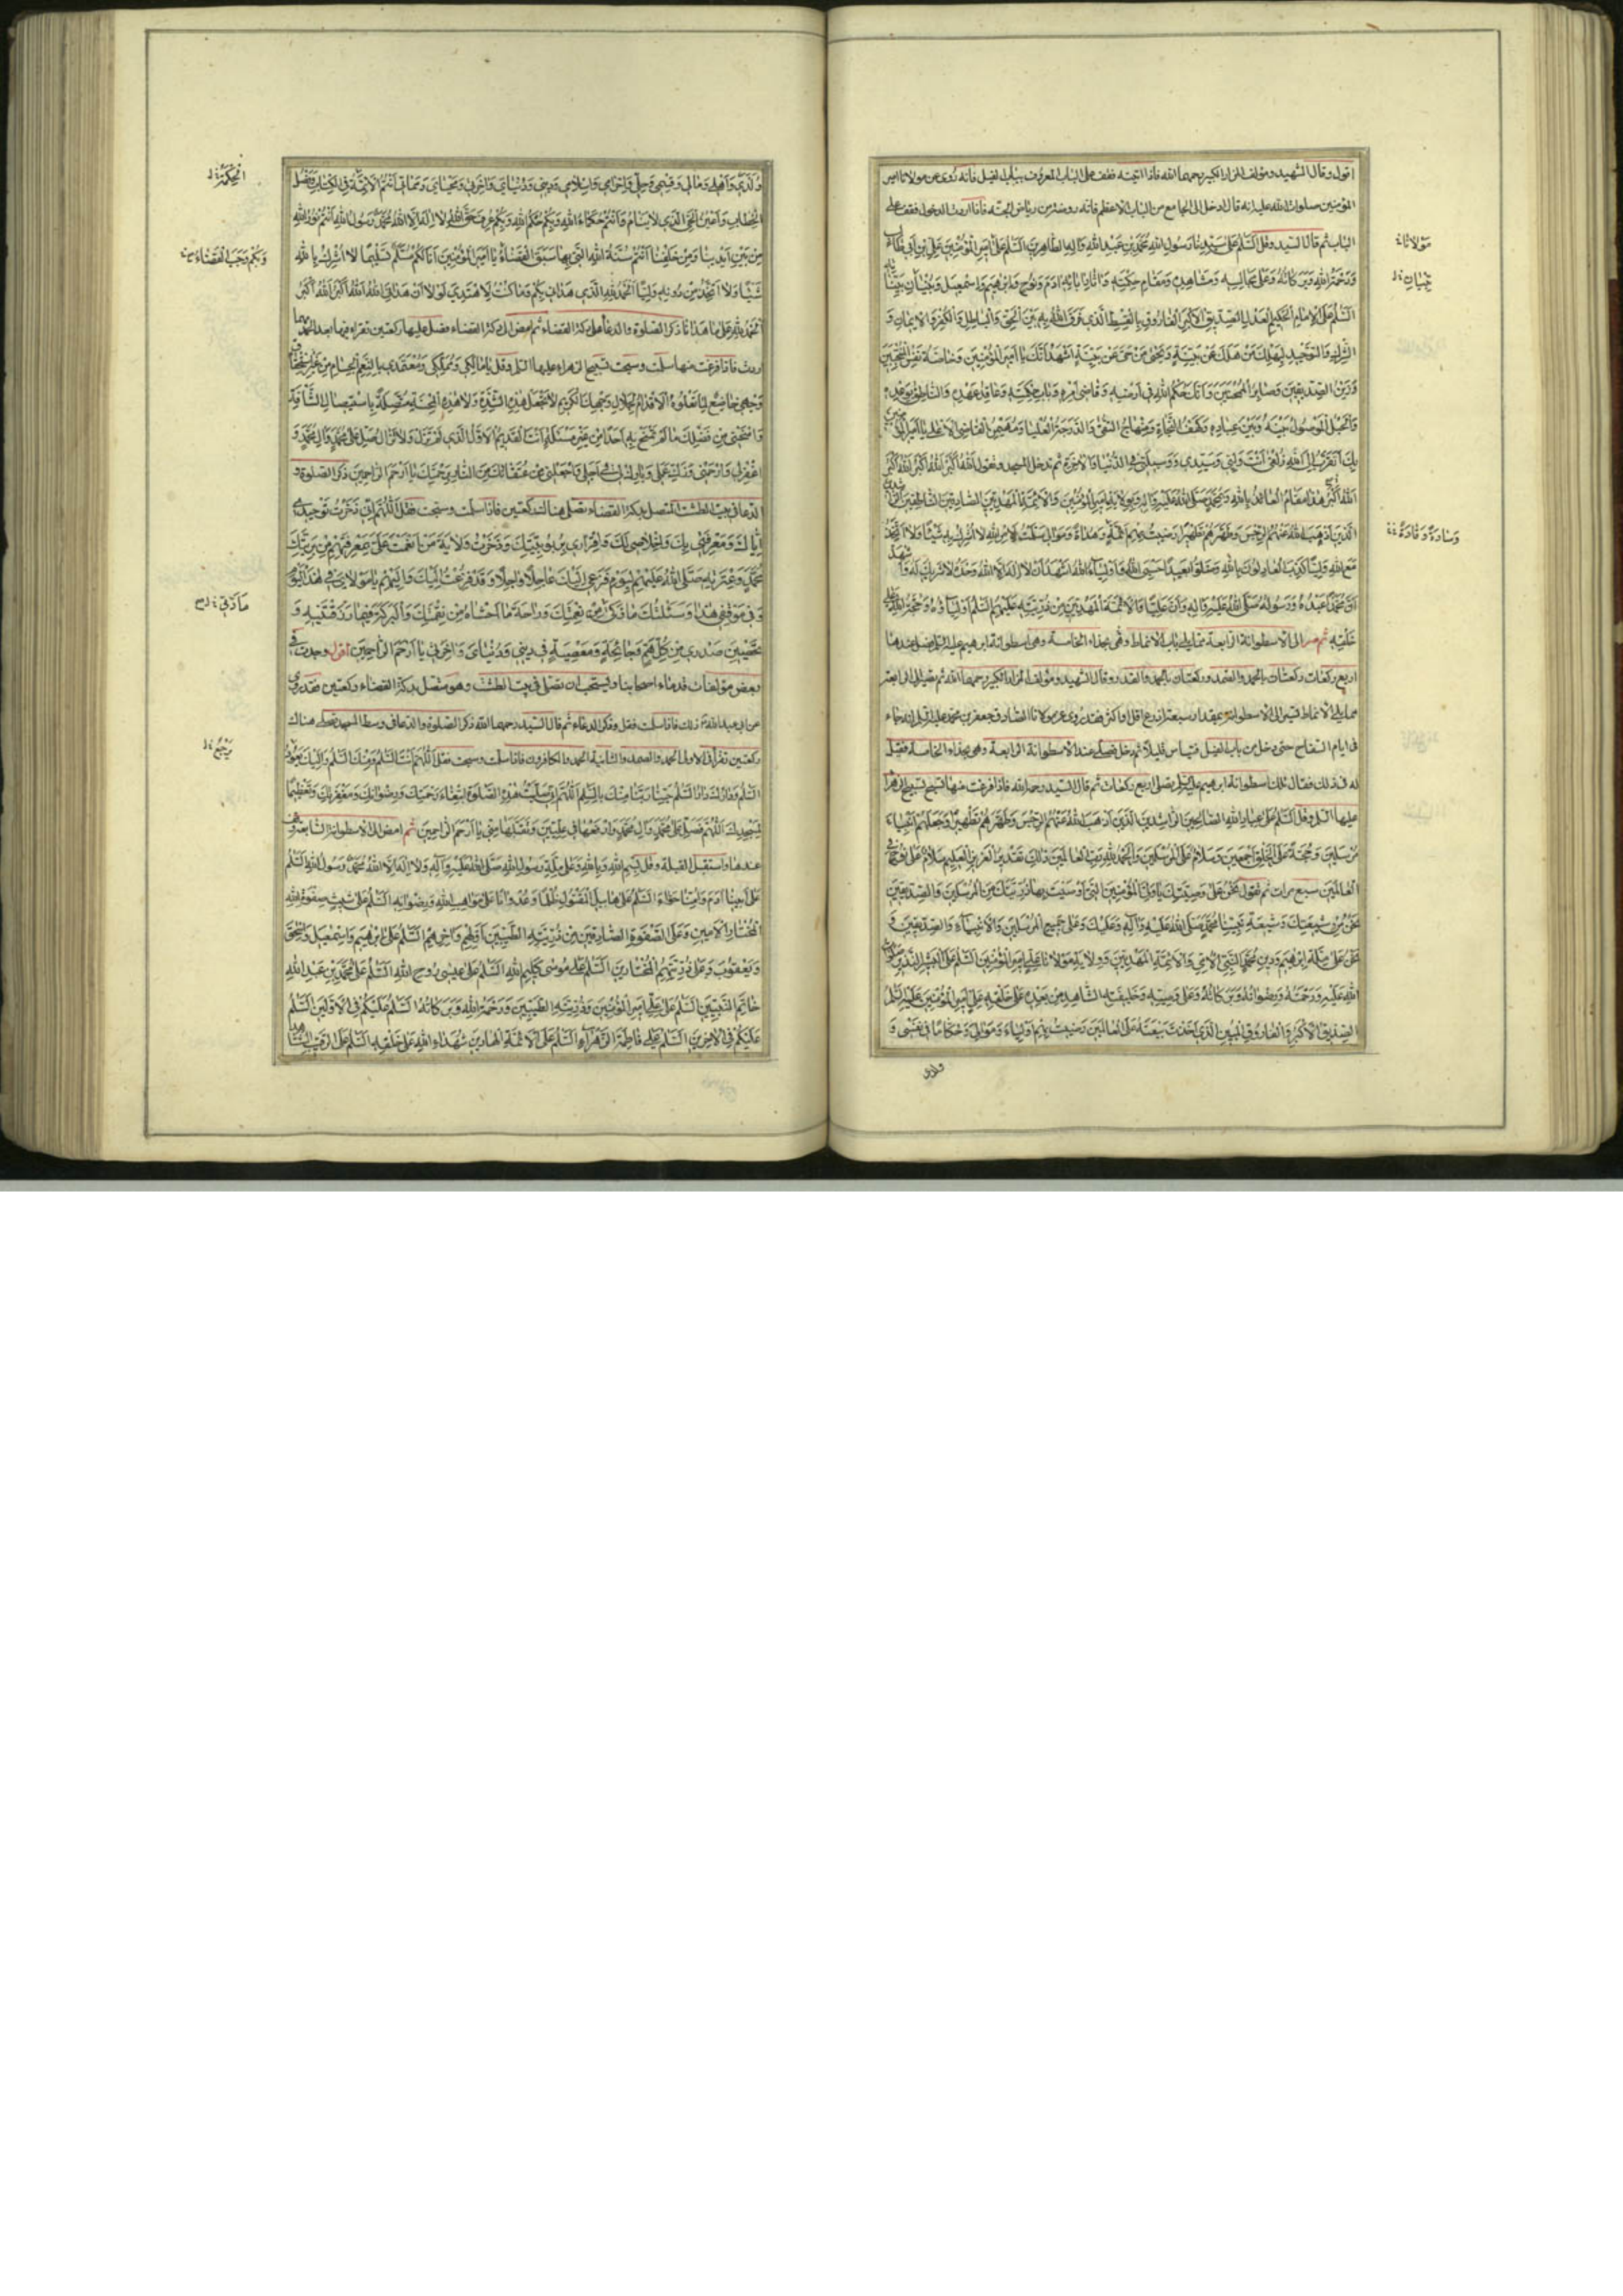 اقول وقال الشهيد ومؤلف المزار الكبير رحمهما الله فاذا اتيته فقف على الباب المعروف بباب الفيل فانه روى عن مولانا امير
المؤمنين صلوات الله عليه انه قال ادخل الى الجامع من الباب الاعظم فانه روضة من رياض الجنة فاذا اردت الدخول فقف على
الباب ثم قال السيد وقل اَلسَّلٰمُ عَلىٰ سَيِّدِنا رَسُولِ اللهِ مُحَمَّدِ بْنِ عَبْدِ اللهِ وَالِهِ الطّاهِرينَ اَلسَّلٰمُ عَلىٰ اَميرِ الْمُؤْمِنينَ عَلِيِّ بْنِ اَبي طالِبٍ
مَوْلانا
وَرَحْمَةُ اللهِ وَبَرَكاتُهُ وَعَلىٰ مَجالِسِهِ وَمَشاهِدِهِ وَمَقامِ حِكْمَتِهِ وَاٰثارِ اٰبائِهِ اٰدَمَ وَنُوحٍ وَاِبْرٰهيمَ وَاِسْمٰعيلَ وَبُنْيانِ بَيِّناتِهِ
تِبْيانِ
اَلسَّلٰمُ عَلَى الْاِمامِ الْحَكيمِ الْعَدْلِ الصِّدّيقِ الْاَكْبَرِ الْفارُوقِ بِالْقِسْطِ الَّذي فَرَّقَ اللهُ بِهِ بَيْنَ الْحَقِّ وَالْباطِلِ وَالْكُفْرِ وَالْايمانِ وَ
الشِّرْكِ وَالتَّوْحيدِ لِيَهْلِكَ مَنْ هَلَكَ عَنْ بَيِّنَةٍ وَيَحْيىٰ مَنْ حَيَّ عَنْ بَيِّنَةٍ اَشْهَدُ اَنَّكَ يا اَميرَ الْمُؤْمِنينَ وَخاصَّةُ نَفْسِ الْمُنْتَجَبينَ
وَزَيْنُ الصِّدّيقينَ وَصابِرُ الْمُمْتَحَنينَ وَاَنَّكَ حَكَمُ اللهِ في اَرْضِهِ وَقاضي اَمْرِهِ وَبابُ حِكْمَتِهِ وَعاقِدُ عَهْدِهِ وَالنّاطِقُ بِوَعْدِهِ
وَالْحَبْلُ الْمَوْصُولُ بَيْنَهُ وَبَيْنَ عِبادِهِ وَكَهْفُ النَّجاةِ وَمِنْهاجُ التُّقىٰ وَالدَّرَجَةُ الْعُلْيا وَمُهَيْمِنُ الْقاضِي الْاَعْلىٰ يا اَميرَ الْمُؤْمِنينَ
بِكَ اَتَقَرَّبُ اِلَى اللهِ زُلْفىٰ اَنْتَ وَلِيّي وَسَيِّدي وَوَسيلَتي فِي الدُّنْيا وَالْاٰخِرَةِ ثم تدخل المسجد وتقول اَللهُ اَكْبَرُ اَللهُ اَكْبَرُ اَللهُ اَكْبَرُ
هٰذا مَقامُ الْعائِذِ بِاللهِ وَبِمُحَمَّدٍ صَلَّى اللهُ عَلَيْهِ وَالِهِ وَبِوِلايَةِ اَميرِ الْمُؤْمِنينَ وَالْاَئِمَّةِ الْمَهْدِيّينَ الصّادِقينَ النّاطِقينَ الرّاشِدينَ
الَّذينَ اَذْهَبَ اللهُ عَنْهُمُ الرِّجْسَ وَطَهَّرَهُمْ تَطْهيرًا رَضيتُ بِهِمْ اَئِمَّةً وَهُداةً وَمَوالِيَ سَلَّمْتُ لِاَمْرِ اللهِ لا اُشْرِكُ بِهِ شَيْئًا وَلا اَتَّخِذُ
وَسادَةً وَقادَةً
مَعَ اللهِ وَلِيًّا كَذَبَ الْعادِلُونَ بِاللهِ وَضَلُّوا ضَلالًا بَعيدًا حَسْبِيَ اللهُ وَاَوْلِياءُ اللهِ اَشْهَدُ اَنْ لا اِلٰهَ اِلَّا اللهُ وَحْدَهُ لا شَريكَ لَهُ وَاَشْهَدُ
اَنَّ مُحَمَّدًا عَبْدُهُ وَرَسُولُهُ صَلَّى اللهُ عَلَيْهِ وَالِهِ وَاَنَّ عَلِيًّا وَالْاَئِمَّةَ الْمَهْدِيّينَ مِنْ ذُرِّيَّتِهِ عَلَيْهِمُ السَّلٰمُ اَوْلِياؤُهُ وَحُجَّةُ اللهِ عَلىٰ
خَلْقِهِ ثم صر الى الاسطوانة الرابعة مما يلي باب الانماط وهي بحذاء الخامسة وهي اسطوانة ابرهيم عليه السلم فصل عندها
اربع ركعات ركعتان بالحمد والصمد وركعتان بالحمد والقدر وقال الشهيد ومؤلف المزار الكبير رحمهما الله ثم تمضي الى الرابعة
مما يلي الانماط
في ايام السفاح حتى دخل من باب الفيل فتياسر قليلا ثم دخل فصلى عند الاسطوانة الرابعة وهي بحذاء الخامسة فقيل
له في ذلك فقال تلك اسطوانة ابرهيم عليه السلم تصلي اربع ركعات ثم قال السيد رحمه الله فاذا فرغت منها فسبح تسبيح الزهراء
عليها السلم وقل اَلسَّلٰمُ عَلىٰ عِبادِ اللهِ الصّالِحينَ الرّاشِدينَ الَّذينَ اَذْهَبَ اللهُ عَنْهُمُ الرِّجْسَ وَطَهَّرَهُمْ تَطْهيرًا وَجَعَلَهُمْ اَنْبِياءَ
مُرْسَلينَ وَحُجَّةً عَلَى الْخَلْقِ اَجْمَعينَ وَسَلامٌ عَلَى الْمُرْسَلينَ وَالْحَمْدُ لِلّٰهِ رَبِّ الْعالَمينَ ذٰلِكَ تَقْديرُ الْعَزيزِ الْعَليمِ سَلامٌ عَلىٰ نُوحٍ فِي
الْعالَمينَ سبع مرات ثم تقول نَحْنُ عَلىٰ وَصِيَّتِكَ يا وَلِيَّ الْمُؤْمِنينَ الَّتي اَوْصَيْتَ بِها ذُرِّيَّتَكَ مِنَ الْمُرْسَلينَ وَالصِّدّيقينَ
نَحْنُ مِنْ شيعَتِكَ وَشيعَةِ نَبِيِّنا مُحَمَّدٍ صَلَّى اللهُ عَلَيْهِ وَاٰلِهِ وَعَلَيْكَ وَعَلىٰ جَميعِ الْمُرْسَلينَ وَالْاَنْبِياءِ وَالصِّدّيقينَ وَ
نَحْنُ عَلىٰ مِلَّةِ اِبْرٰهيمَ وَدينِ مُحَمَّدٍ النَّبِيِّ الْاُمِّيِّ وَالْاَئِمَّةِ الْمَهْدِيّينَ وَوِلايَةِ مَوْلانا عَلِيٍّ اَميرِ الْمُؤْمِنينَ اَلسَّلٰمُ عَلَى الْبَشيرِ النَّذيرِ صَلَواتُ
اللهِ عَلَيْهِ وَرَحْمَتُهُ وَرِضْوانُهُ وَبَرَكاتُهُ وَعَلىٰ وَصِيِّهِ وَخَليفَتِهِ الشّاهِدِ مِنْ بَعْدِهِ عَلىٰ خَلْقِهِ عَلِيٍّ اَميرِ الْمُؤْمِنينَ عَلَيْهِ السَّلٰمُ
الصِّدّيقِ الْاَكْبَرِ وَالْفارُوقِ الْمُبينِ الَّذي اَخَذْتَ بَيْعَتَهُ عَلَى الْعالَمينَ رَضيتُ بِهِمْ اَوْلِياءَ وَمَوالِيَ وَحُكّامًا في نَفْسي وَ
ولدى
وُلْدي وَاَهْلي وَمالي وَقِسْمي وَحِلّي وَاِحْرامي وَاِسْلامي وَديني وَدُنْيايَ وَاٰخِرَتي وَمَحْيايَ وَمَماتي اَنْتُمُ الْاَئِمَّةُ فِي الْكِتابِ وَفَصْلُ
الْحِكْمَةِ
الْخِطابِ وَاَعْيُنُ الْحَيِّ الَّذي لا يَنامُ وَاَنْتُمْ حُكَماءُ اللهِ وَبِكُمْ حَكَمَ اللهُ وَبِكُمْ عُرِفَ حَقُّ اللهِ لا اِلٰهَ اِلَّا اللهُ مُحَمَّدٌ رَسُولُ اللهِ اَنْتُمْ نُورُ اللهِ
مِنْ بَيْنِ اَيْدينا وَمِنْ خَلْفِنا اَنْتُمْ سُنَّةُ اللهِ الَّتي بِها سَبَقَ الْقَضاءُ يا اَميرَ الْمُؤْمِنينَ اَنَا لَكُمْ مُسَلِّمٌ تَسْليمًا لا اُشْرِكُ بِاللهِ
وَبِكُمْ وَجَبَ الْقَضاءُ
شَيْئًا وَلا اَتَّخِذُ مِنْ دُونِهِ وَلِيًّا اَلْحَمْدُ لِلّٰهِ الَّذي هَداني بِكُمْ وَما كُنْتُ لِاَهْتَدِيَ لَوْلا اَنْ هَدانِيَ اللهُ اَللهُ اَكْبَرُ اَللهُ اَكْبَرُ
اَلْحَمْدُ لِلّٰهِ عَلىٰ ما هَدانا ذكر الصلوة والدعاء على دكة القضاء ثم امض الى دكة القضاء فصل عليها ركعتين تقرا فيهما بعد الحمد مهما
اردت فاذا فرغت منها سلمت وسبحت تسبيح الزهراء عليها السلم وقل يا مالِكي وَمُمَلِّكي وَمُعْتَمَدي بِالنِّعَمِ الْجِسامِ مِنْ غَيْرِ اسْتِحْقاقٍ
وَجْهي خاضِعٌ لِما تَعْلُوهُ الْاَقْدامُ لِجَلالِ وَجْهِكَ الْكَريمِ لا تَجْعَلْ هٰذِهِ الشِّدَّةَ وَلا هٰذِهِ الْمِحْنَةَ مُتَّصِلَةً بِاسْتيصالِ الشَّأْفَةِ
وَامْنَحْني مِنْ فَضْلِكَ ما لَمْ تَمْنَحْ بِهِ اَحَدًا مِنْ غَيْرِ مَسْئَلَةٍ اَنْتَ الْقَديمُ الْاَوَّلُ الَّذي لَمْ تَزَلْ وَلا تَزالُ صَلِّ عَلىٰ مُحَمَّدٍ وَاٰلِ مُحَمَّدٍ وَ
اغْفِرْ لي وَارْحَمْني وَزَكِّ عَمَلي وَبارِكْ لي في اَجَلي وَاجْعَلْني مِنْ عُتَقائِكَ مِنَ النّارِ بِرَحْمَتِكَ يا اَرْحَمَ الرّاحِمينَ ذكر الصلوة و
الدعاء في بيت الطشت المتصل بدكة القضاء تصلي هناك ركعتين فاذا سلمت وسبحت فقل اَللّٰهُمَّ اِنّي ذَخَرْتُ تَوْحيدي
اِيّاكَ وَمَعْرِفَتي بِكَ وَاِخْلاصي لَكَ وَاِقْراري بِرُبُوبِيَّتِكَ وَذَخَرْتُ وِلايَةَ مَنْ اَنْعَمْتَ عَلَيَّ بِمَعْرِفَتِهِمْ مِنْ بَرِيَّتِكَ
مُحَمَّدٍ وَعِتْرَتِهِ صَلَّى اللهُ عَلَيْهِمْ لِيَوْمِ فَزَعي اِلَيْكَ عاجِلًا وَاٰجِلًا وَقَدْ فَزِعْتُ اِلَيْكَ وَاِلَيْهِمْ يا مَوْلايَ في هٰذَا الْيَوْمِ
وَفي مَوْقِفي هٰذا وَسَئَلْتُكَ ما زَكىٰ مِنْ نِعْمَتِكَ وَاِزاحَةَ ما اَخْشاهُ مِنْ نِقْمَتِكَ وَالْبَرَكَةَ فيما رَزَقْتَنيهِ وَ
مادّتي
تَحْصينَ صَدْري مِنْ كُلِّ هَمٍّ وَجائِحَةٍ وَمَعْصِيَةٍ في ديني وَدُنْيايَ وَاٰخِرَتي يا اَرْحَمَ الرّاحِمينَ اقول وجدت في
بعض مؤلفات قدماء اصحابنا ويستحب ان تصلي في بيت الطشت وهو متصل بدكة القضاء ركعتين فقد روى
عن ابي عبدالله ذلك فاذا سلمت فقل وذكر الدعاء ثم قال السيد رحمه الله ذكر الصلوة والدعاء في وسط المسجد تصلي هناك
ركعتين تقرا في الاولى الحمد والصمد والثانية الحمد والكافرون فاذا سلمت وسبحت فقل اَللّٰهُمَّ اَنْتَ السَّلٰمُ وَمِنْكَ السَّلٰمُ وَاِلَيْكَ يَعُودُ
يَرْجِعُ
السَّلٰمُ وَدارُكَ دارُ السَّلٰمِ حَيِّنا رَبَّنا مِنْكَ بِالسَّلٰمِ اَللّٰهُمَّ اِنّي صَلَّيْتُ هٰذِهِ الصَّلٰوةَ ابْتِغاءَ رَحْمَتِكَ وَرِضْوانِكَ وَمَغْفِرَتِكَ وَتَعْظيمًا
لِمَسْجِدِكَ اَللّٰهُمَّ فَصَلِّ عَلىٰ مُحَمَّدٍ وَاٰلِ مُحَمَّدٍ وَارْفَعْها في عِلِّيّينَ وَتَقَبَّلْها مِنّي يا اَرْحَمَ الرّاحِمينَ ثم امض الى الاسطوانة السابعة وقف
عندها واستقبل القبلة وقل بِسْمِ اللهِ وَبِاللهِ وَعَلىٰ مِلَّةِ رَسُولِ اللهِ صَلَّى اللهُ عَلَيْهِ وَاٰلِهِ وَلا اِلٰهَ اِلَّا اللهُ مُحَمَّدٌ رَسُولُ اللهِ اَلسَّلٰمُ
عَلىٰ اَبينا اٰدَمَ وَاُمِّنا حَوّاءَ اَلسَّلٰمُ عَلىٰ هابيلَ الْمَقْتُولِ ظُلْمًا وَعُدْوانًا عَلىٰ مَواهِبِ اللهِ وَرِضْوانِهِ اَلسَّلٰمُ عَلىٰ شيثٍ صَفْوَةِ اللهِ
الْمُخْتارِ الْاَمينِ وَعَلَى الصَّفْوَةِ الصّادِقينَ مِنْ ذُرِّيَّتِهِ الطَّيِّبينَ اَوَّلِهِمْ وَاٰخِرِهِمْ اَلسَّلٰمُ عَلىٰ اِبْرٰهيمَ وَاِسْمٰعيلَ وَاِسْحٰقَ
وَيَعْقُوبَ وَعَلىٰ ذُرِّيَّتِهِمُ الْمُخْتارينَ اَلسَّلٰمُ عَلىٰ مُوسىٰ كَليمِ اللهِ اَلسَّلٰمُ عَلىٰ عيسىٰ رُوحِ اللهِ اَلسَّلٰمُ عَلىٰ مُحَمَّدِ بْنِ عَبْدِ اللهِ
خاتَمِ النَّبِيّينَ اَلسَّلٰمُ عَلىٰ عَلِيٍّ اَميرِ الْمُؤْمِنينَ وَذُرِّيَّتِهِ الطَّيِّبينَ وَرَحْمَةُ اللهِ وَبَرَكاتُهُ اَلسَّلٰمُ عَلَيْكُمْ فِي الْاَوَّلينَ اَلسَّلٰمُ
عَلَيْكُمْ فِي الْاٰخِرينَ اَلسَّلٰمُ عَلىٰ فاطِمَةَ الزَّهْراءِ اَلسَّلٰمُ عَلَى الْاَئِمَّةِ الْهادينَ شُهَداءِ اللهِ عَلىٰ خَلْقِهِ اَلسَّلٰمُ عَلَى الرَّقيبِ الشّاهِدِ